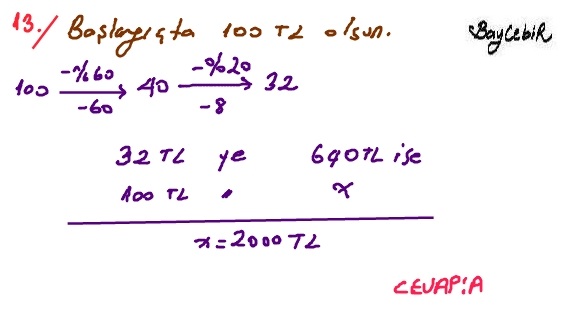 13./ Başlangıçta 100 TL olsun.
BayCebiR
100 -%60 -60 → 40 -%20 -8 → 32
32 TL ye 640TL ise
100 TL " x
x=2000 TL
CEVAP:A